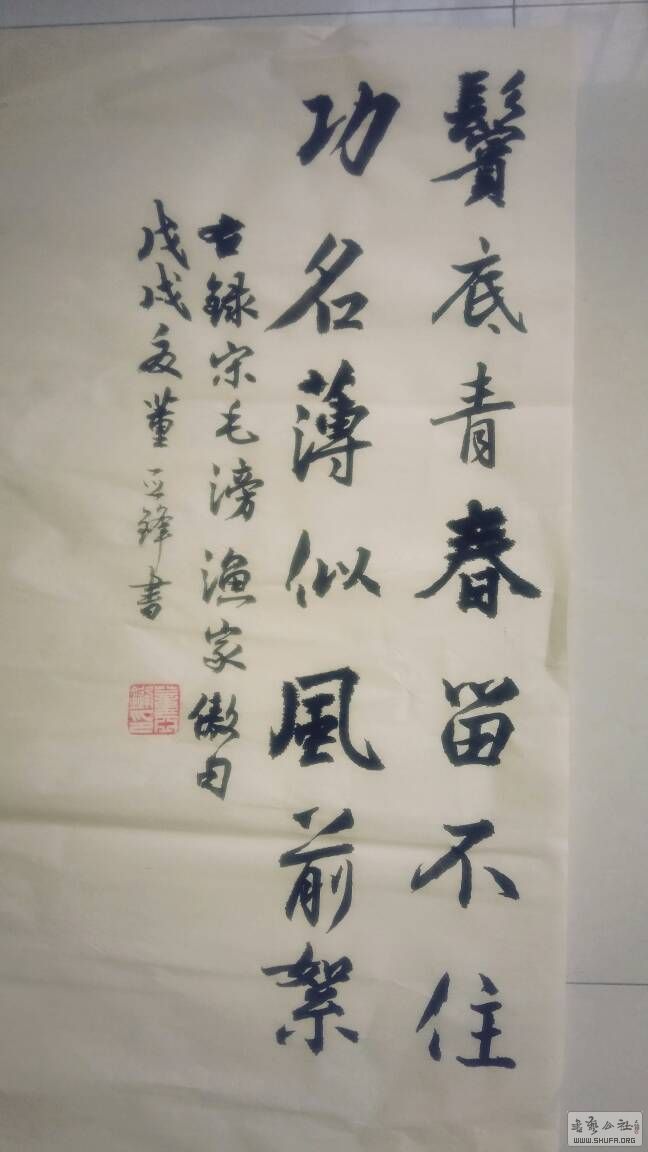 鬢底青春留不住
功名薄似風前絮
右録宋毛滂漁家傲句
戊戌夏董亚鋒書
書藝公社
WWW.SHUFA.ORG